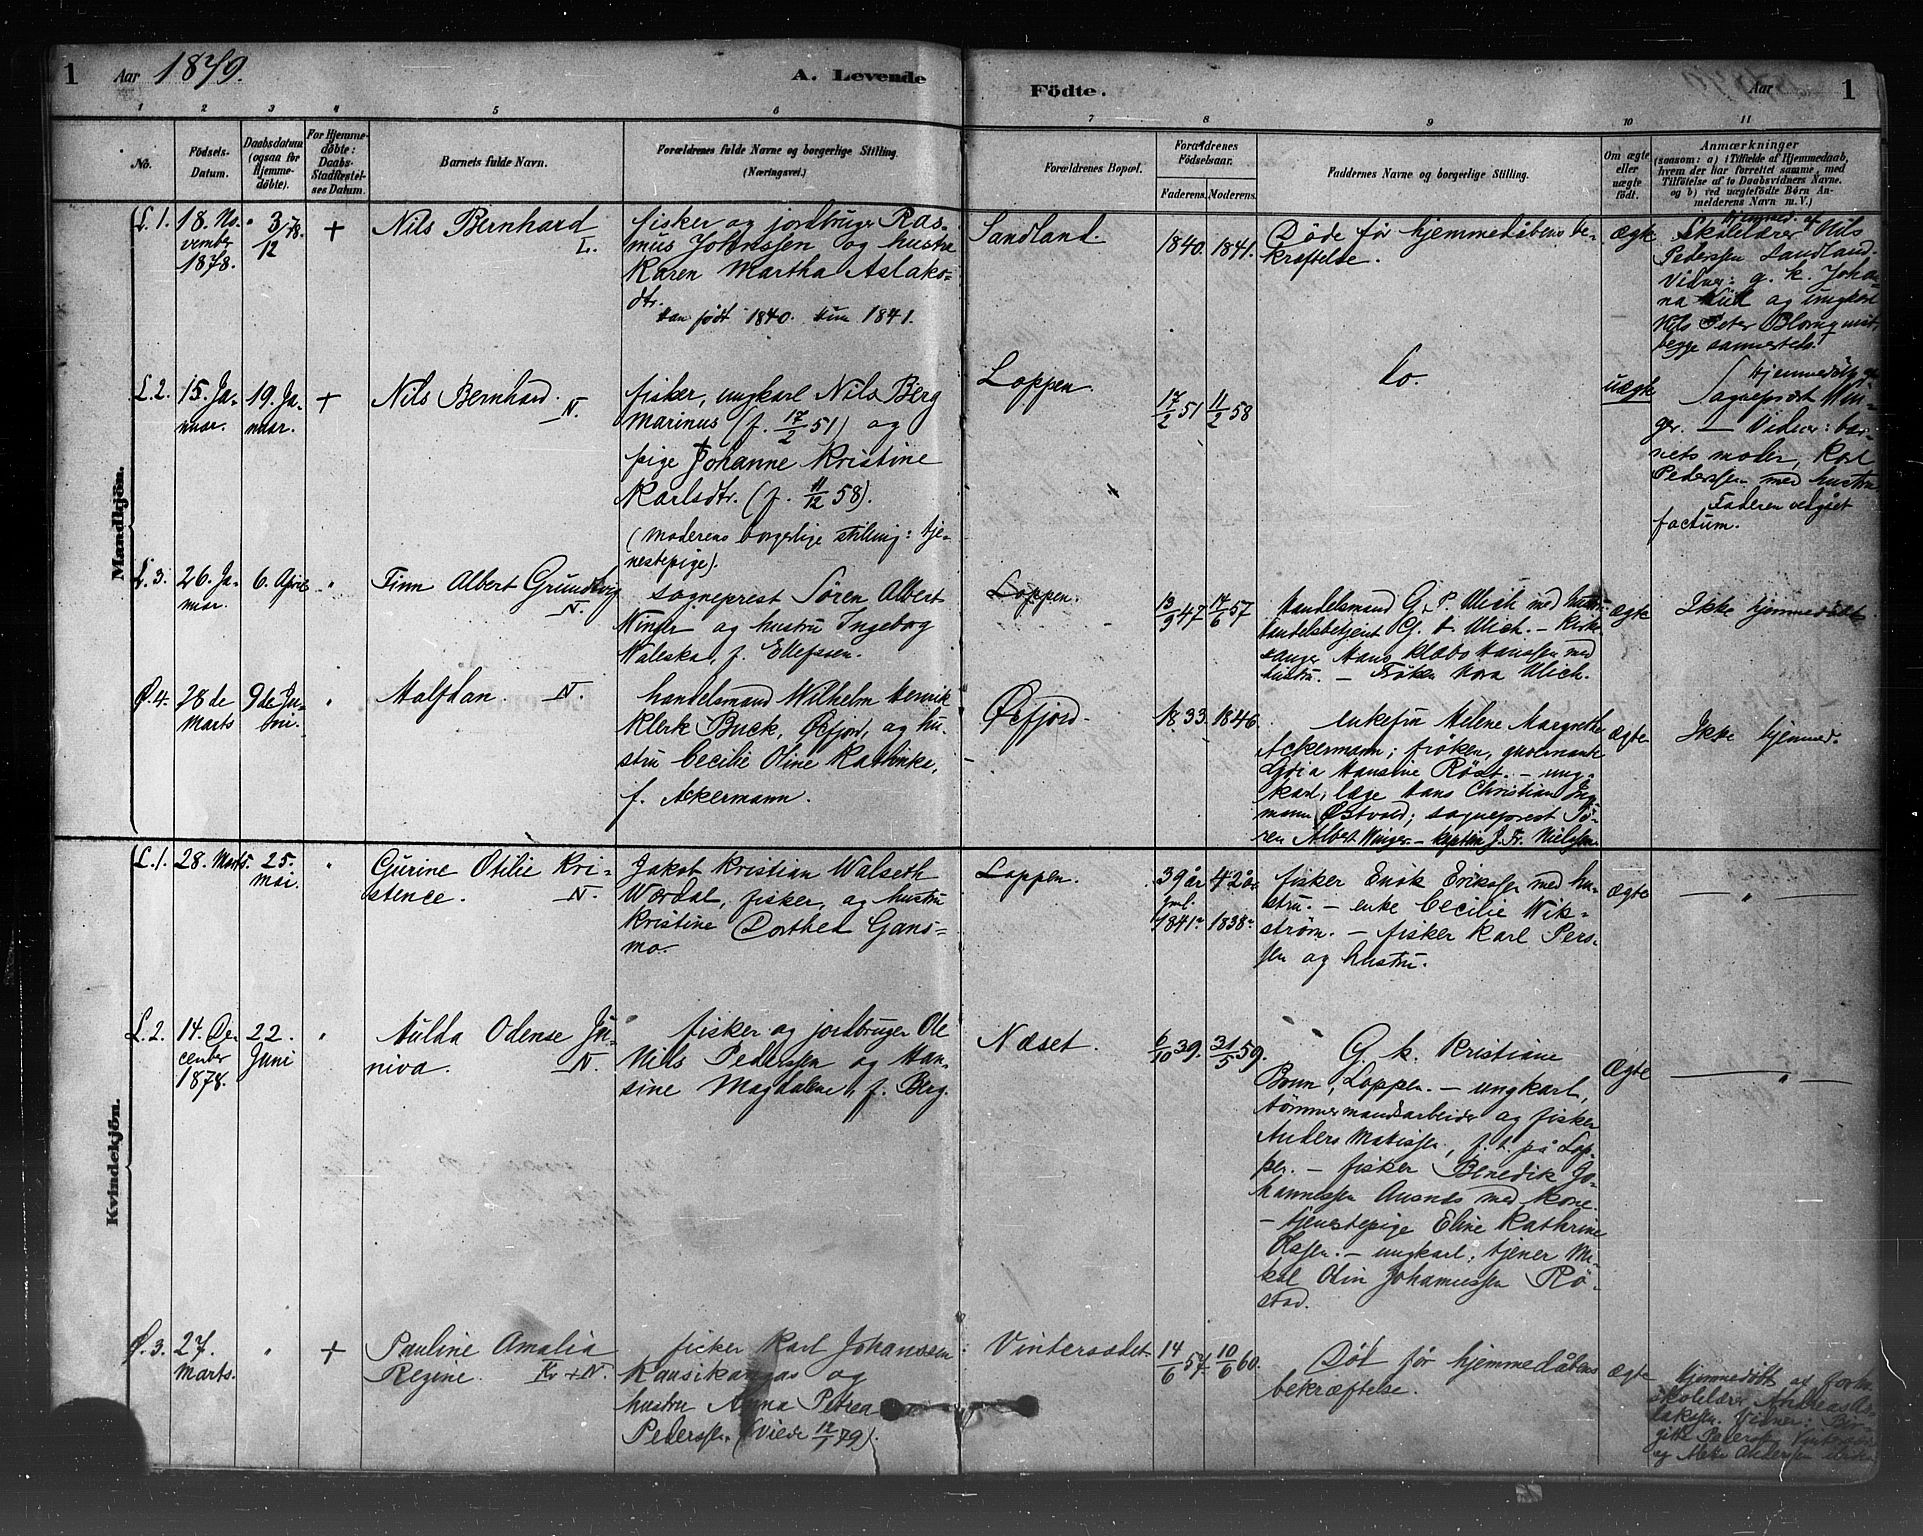 1 Aar 1879. A. Levende
Födte. Aar 1
1 2 3 4 5 6 7 8 9 10 11
No.
Födsels-
Datum.
Daabsdatum
(ogsaa for
Hjemme-
döbte).
For Hjemme-
döbte:
Daabs-
Stadfæstel-
ses Datum.
Barnets fulde Navn.
Forældrenes fulde Navne og borgerlige Stilling
(Næringsvei.)
Forældrenes Bopæl.
Forældrenes
Födselsaar.
Faderens. Moderens.
Faddernes Navne og borgerlige Stilling.
Om ægte
eller
uægte
födt.
Anmærkninger
(saasom: a) i Tilfælde af Hjemmedaab,
hvem der har forrettet samme, med
Tilföielse af to Daabsvidners Navne.
og b) ved uægtefödte Börn An-
melderens Navn m. V.)
Mandkjön.
L. 1.
18. No-
vember
1878.
" 3/12 78.
+
Nils Bernhard
L.
fisker og jordbruger Ras-
mus Johnssen og hustru
Karen Martha Aslaks-
dtr.
Han født 1840. Hun 1841.
Sandland.
1840. 1841.
Døde før hjemmedåbens be-
kræftelse.
ægte
hjemmed. af
Skolelærer Nils
Pederssen Sandland.
Vidner: g. k. Joha-
na og ungkarl
Nils Peter Blomqvist,
begge sammesteds.
L. 2.
15. Ja-
nuar.
19. Ja-
nuar.
+
Nils Bernhard.
N.
fisker, ungkarl Nils Berg
Marinus (f. 17/2 51) og
pige Johanne Kristine
Karlsdtr. (f. 11/12 58).
(moderens borgerlige stilling: tje-
nestepige).
Loppen.
17/2 51 11/2 58
do.
uægte
Hjemmedöbt af
Sogneprest Win-
ger. — Vidner: bar-
nets moder, Karl
Pederssen med hustru.
Faderen vedgået
factum.
L. 3.
26. Ja-
nuar.
6. April
"
Finn Albert Grundtvig
N.
sogneprest Sören Albert
Winger og hustru Ingeborg
Waleska, f. Ellefssen.
Loppen.
13/9 47 17/6 57
Handelsmand G. P. Ulich med hustru.
Handelsbetjent G. Ulich. — Kirke-
sanger Hans Klæbo Hanssen med
hustru. — Frøken Nora Ulich.
ægte
Ikke hjemmedöbt
Ø. 4.
28de
Marts
9de Ju-
ni.
"
Halfdan N.
handelsmand Wilhelm Henrik
Klerk Buck, Øxfjord, og hu-
stru Cecilie Oline Kathinka,
f. Ackermann.
Øxfjord.
1833. 1846.
enkefru Helene Margrethe
Ackermann; frøken, guvernante
Lydia Hansine Røst. — ung-
karl, læge Hans Christian Ing-
mann Østvold; sogneprest Sö-
ren Albert Winger. — kaptein J. Fr. Nielsen.
ægte
Ikke hjemmed.
Kvindekjön.
L. 1.
28. Marts.
25.
mai.
"
Gurine Otilie Kri-
stence. N.
Jakob Kristian Walseth
Wordal, fisker, og hustru
Kristine Dorthea Gans-
mo.
Loppen.
39 år 42 år
gml.
1841 1838
fisker Enok Erikssen med hu-
stru. — enke Cecilie Wik-
strøm. — fisker Karl Pers-
sen og hustru.
ægte
— " —
L. 2.
14. De-
cember
1878.
22.
Juni
"
Hulda Odense Ju-
niva. N.
fisker og jordbruger Ole
Nils Pederssen og Han-
sine Magdalene, f. Berg.
Næset.
6/10 39. 31/5 59.
G. k. Kristiane
Bonn, Loppen. — ungkarl,
tömmermandsarbeider og fisker
Anders Matissen, f. t. på Lop-
pen. — fisker Benedik Jo-
hannessen Ausnes med kone.
— tjenestepige Eline Kathrine
Olssen. — ungkarl, tjener Mi-
kal Odin Johannessen Rö-
stad.
Ægte
— " —
Ø. 3.
27.
Marts.
"
+
Pauline Amalia
Regine. Kv + N.
fisker Karl Johanssen
Kausikangas og
hustru Anna Petrea
Pederssen (viede 12/1 79).
Vintersædet.
14/6 57. 10/6 60.
Død før hjemmedåbens
bekræftelse.
ægte
Hjemmedöbt af forh.
skolelærer Andreas As-
lakssen. Vidner: Bir-
gitte Pederssen Vinters
og Mette Anderssen